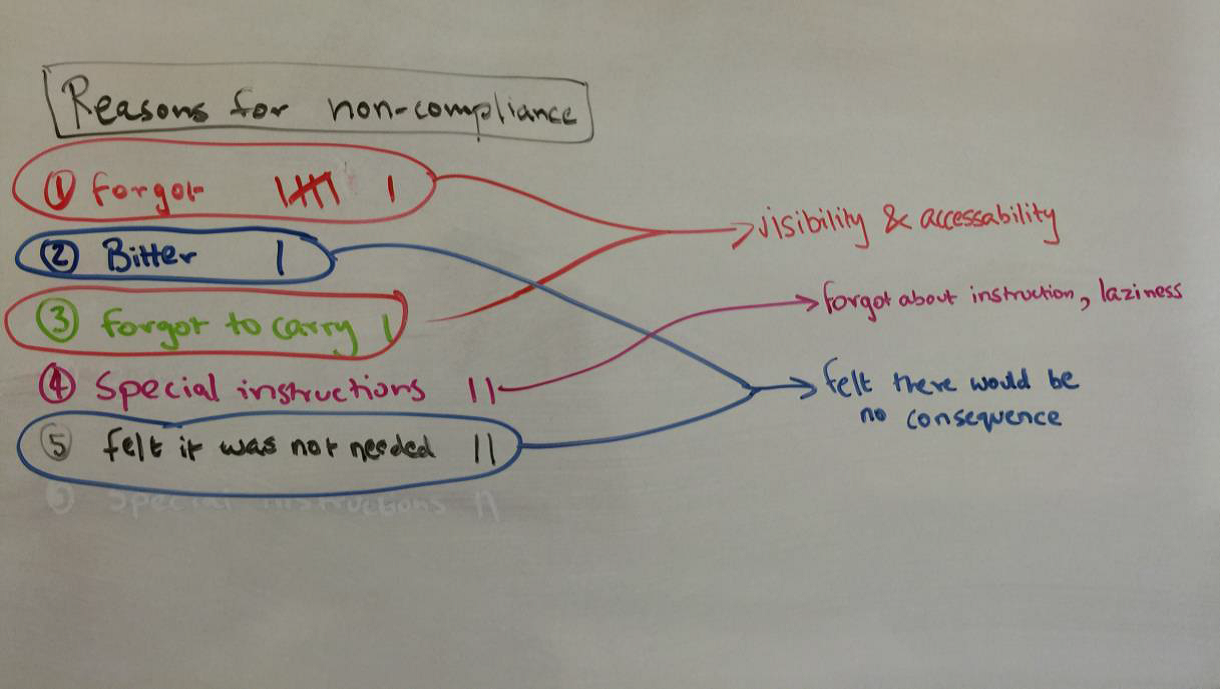 Reasons for non-compliance
① forgot 𝍸 |
② Bitter |
③ forgot to carry |
④ Special instructions ||
⑤ felt it was not needed ||
⑤ Special instructions ||
visibility & accessability
forgot about instruction, laziness
felt there would be
no consequence